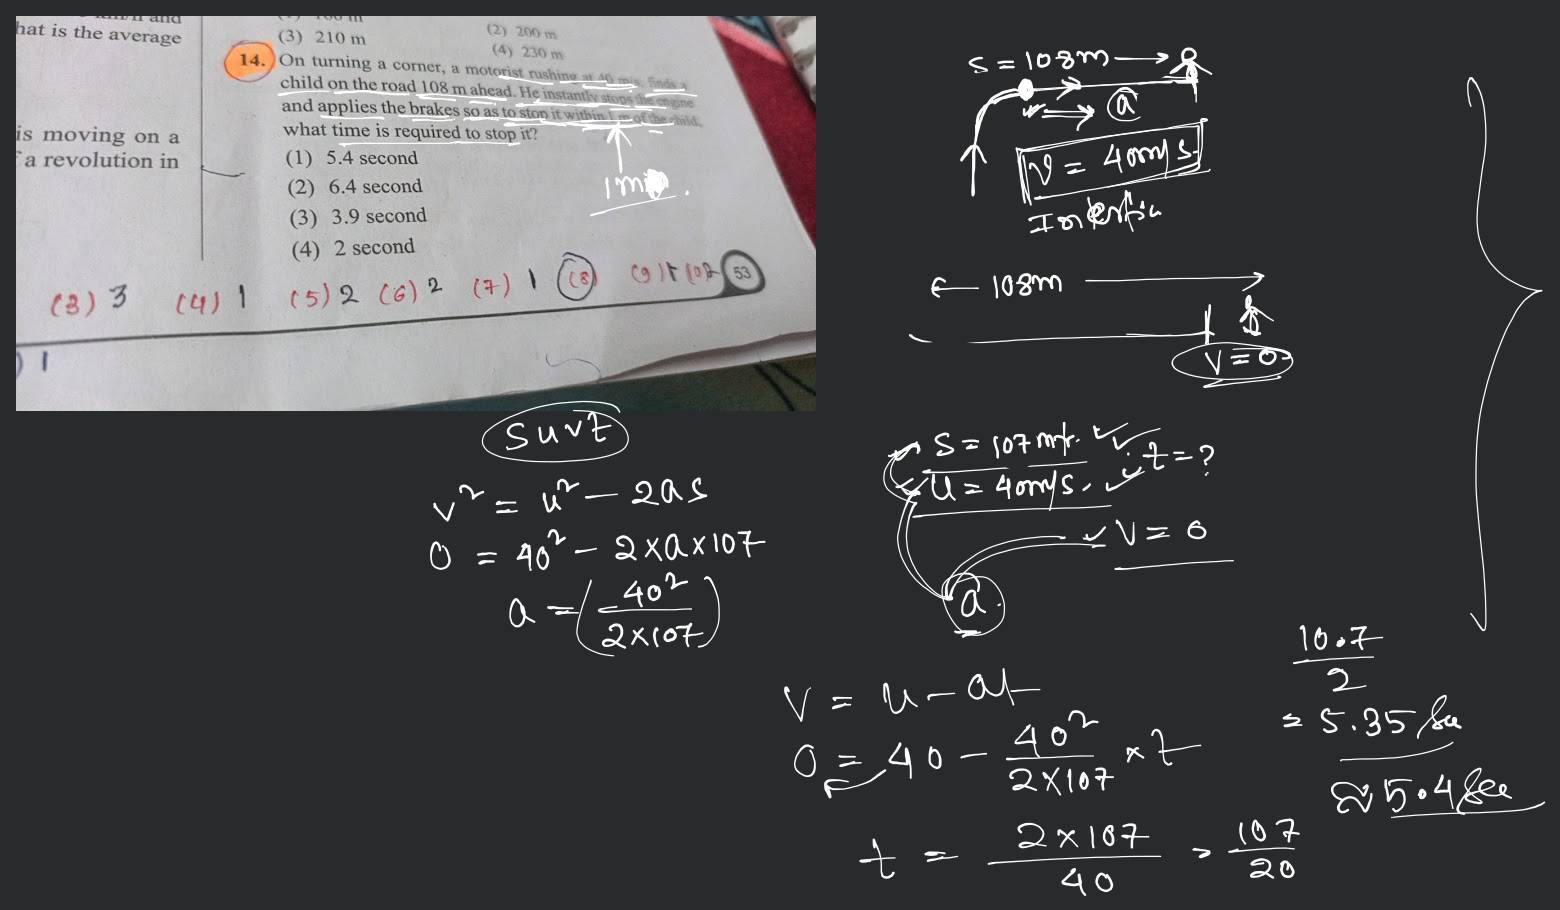 hat is the average
is moving on a
a revolution in
(3) 210 m
(2) 200 m
(4) 230 m
14. On turning a corner, a motorist rushing at 40 m/s, finds a
child on the road 108 m ahead. He instantly stops the engine
and applies the brakes so as to stop it within 1 m of the child,
what time is required to stop it?
(1) 5.4 second
(2) 6.4 second
(3) 3.9 second
(4) 2 second
1m
(3) 3 (4) 1 (5) 2 (6) 2 (7) 1 (8)
53
) 1
S = 108m
a
v = 40m/s
108m
V = 0
S = 107 mtr. t = ?
U = 40m/s.
V = 0
a
suvt
v² = u² - 2as
0 = 40² - 2×a×107
a = (40²/2×107)
V = u - at
0 = 40 - 40²/2×107 × t
t = 2×107/40 = 107/20
10.7/2
= 5.35 Sec
≈ 5.4 Sec